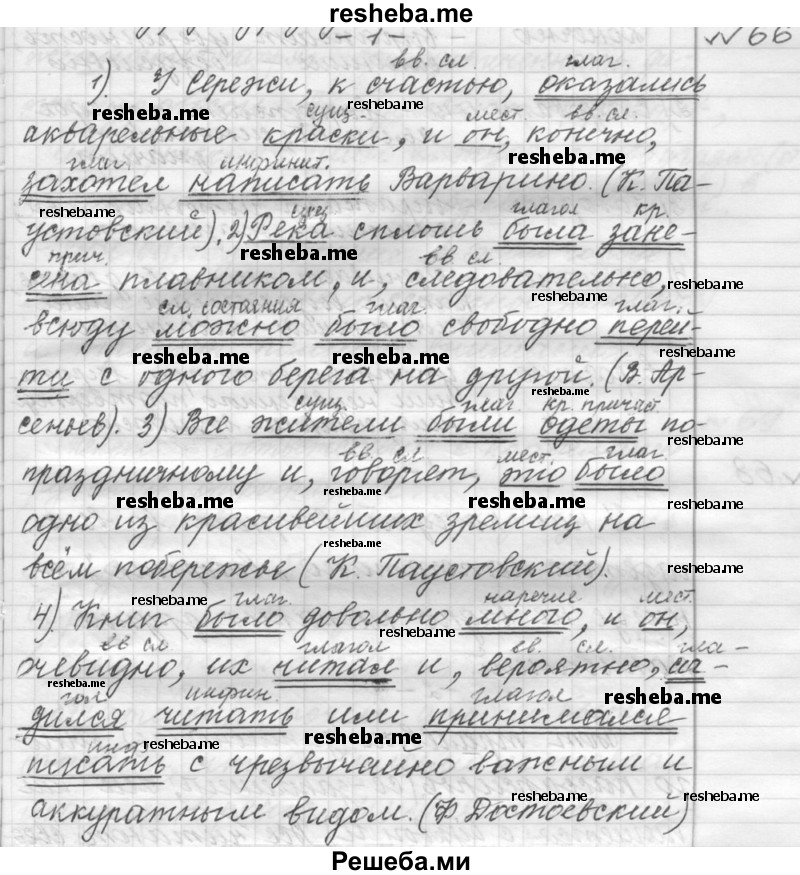 resheba.me
- 1 -
№66
вв. сл. глаг.
1). У Сережи, к счастью, оказались
resheba.me сущ. resheba.me мест. вв. сл.
акварельные краски, и он, конечно,
глаг. инфинит. resheba.me
захотел написать Варварино. (К. Па-
resheba.me сущ. глагол кр. resheba.me
устовский). 2) Река сплошь была зане-
прич. resheba.me вв сл.
сена плавником, и, следовательно,
resheba.me resheba.me
сл. состояния глаг. глаг.
всюду можно было свободно перей-
resheba.me resheba.me resheba.me
ти с одного берега на другой. (В. Ар-
resheba.me
сущ. глаг кр. причаст.
сеньев). 3) Все жители были одеты по-
resheba.me resheba.me
вв. сл мест. глаг.
праздничному и, говорят, это было
resheba.me resheba.me resheba.me resheba.me
одно из красивейших зрелищ на
resheba.me
всём побережье (К. Паустовский).
resheba.me
resheba.me глаг. наречие мест.
4). Книг было довольно много, и он,
resheba.me
вв сл глагол вв. сл. гла-
очевидно, их читал и, вероятно, са-
resheba.me resheba.me
гол инфин. глагол
дился читать или принимался
инф. resheba.me resheba.me resheba.me
писать с чрезвычайно важным и
resheba.me resheba.me
аккуратным видом. (Ф Достоевский)
Решеба.ми